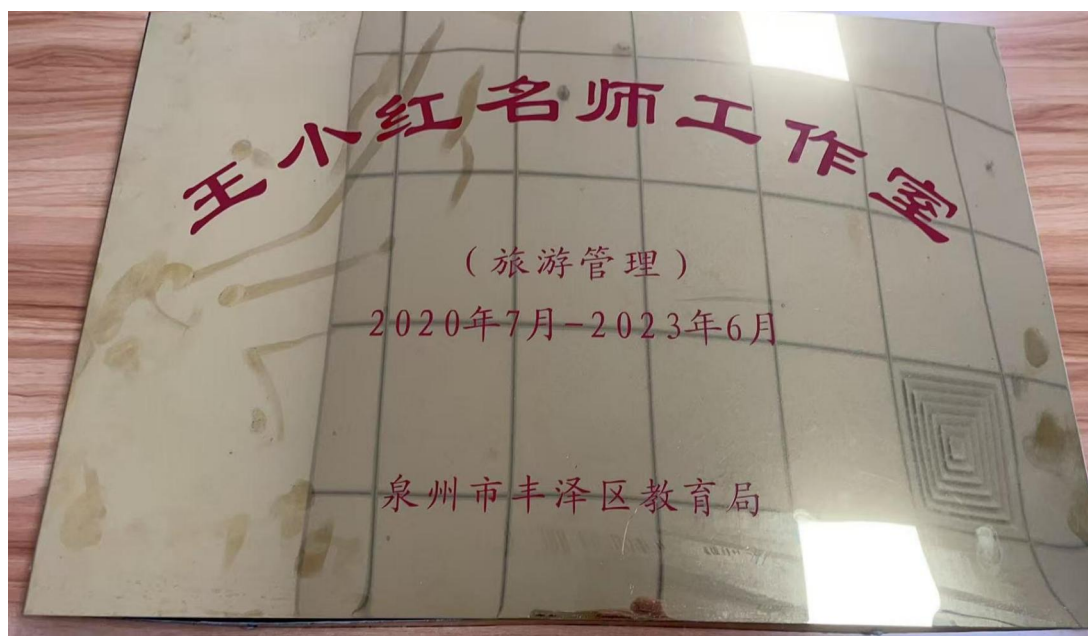 王小红名师工作室
（旅游管理）
2020年7月-2023年6月
泉州市丰泽区教育局